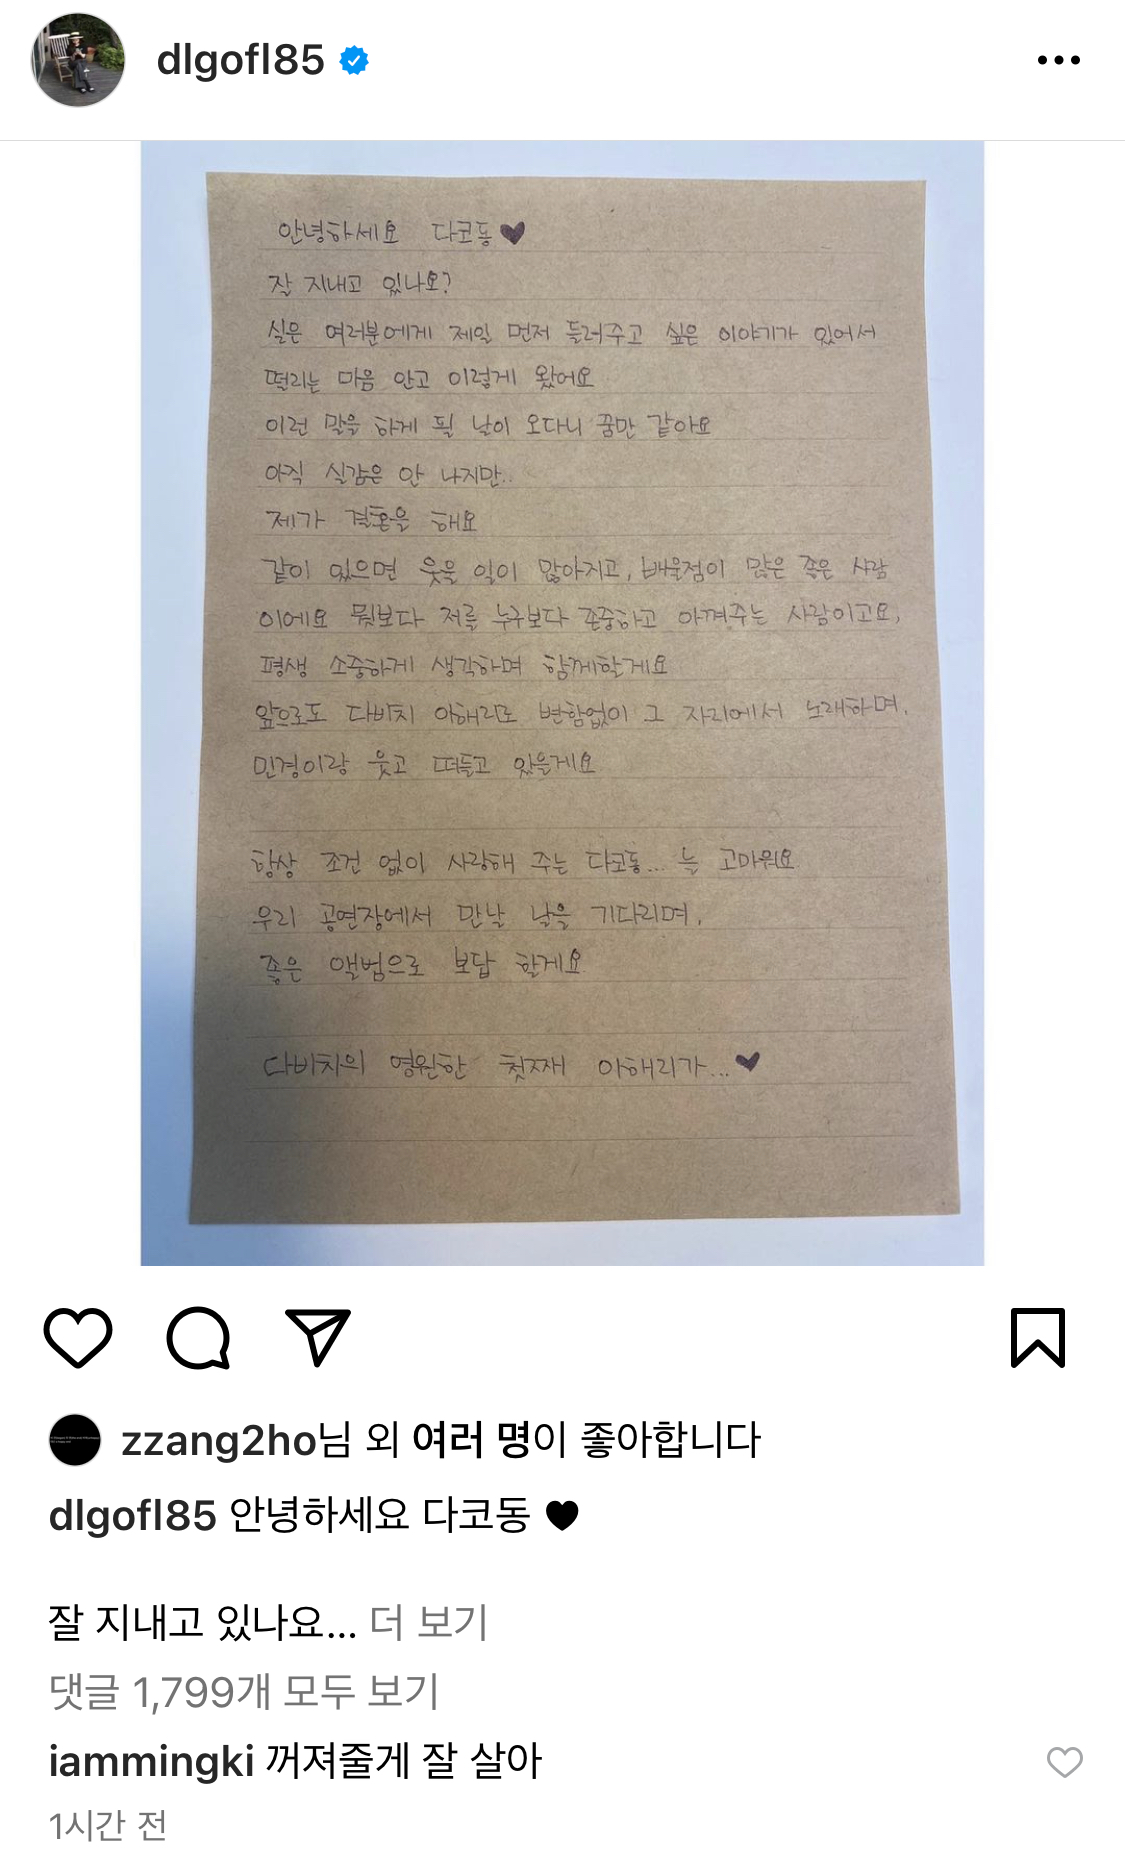 dlgofl85
안녕하세요 다코동♥
잘 지내고 있나요?
실은 여러분에게 제일 먼저 들려주고 싶은 이야기가 있어서
떨리는 마음 안고 이렇게 왔어요
이런 말을 하게 될 날이 오다니 꿈만 같아요
아직 실감은 안 나지만..
제가 결혼을 해요
같이 있으면 웃을 일이 많아지고, 배울점이 많은 좋은 사람
이에요 뭣보다 저를 누구보다 존중하고 아껴주는 사람이고요,
평생 소중하게 생각하며 함께할게요
앞으로도 다비치 이해리로 변함없이 그 자리에서 노래하며,
민경이랑 웃고 떠들고 있을게요
항상 조건 없이 사랑해 주는 다코동... 늘 고마워요
우리 공연장에서 만날 날을 기다리며,
좋은 앨범으로 보답 할게요
다비치의 영원한 첫째 이해리가...♥
zzang2ho님 외 여러 명이 좋아합니다
dlgofl85 안녕하세요 다코동 ♥
잘 지내고 있나요... 더 보기
댓글 1,799개 모두 보기
iammingki 꺼져줄게 잘 살아
1시간 전